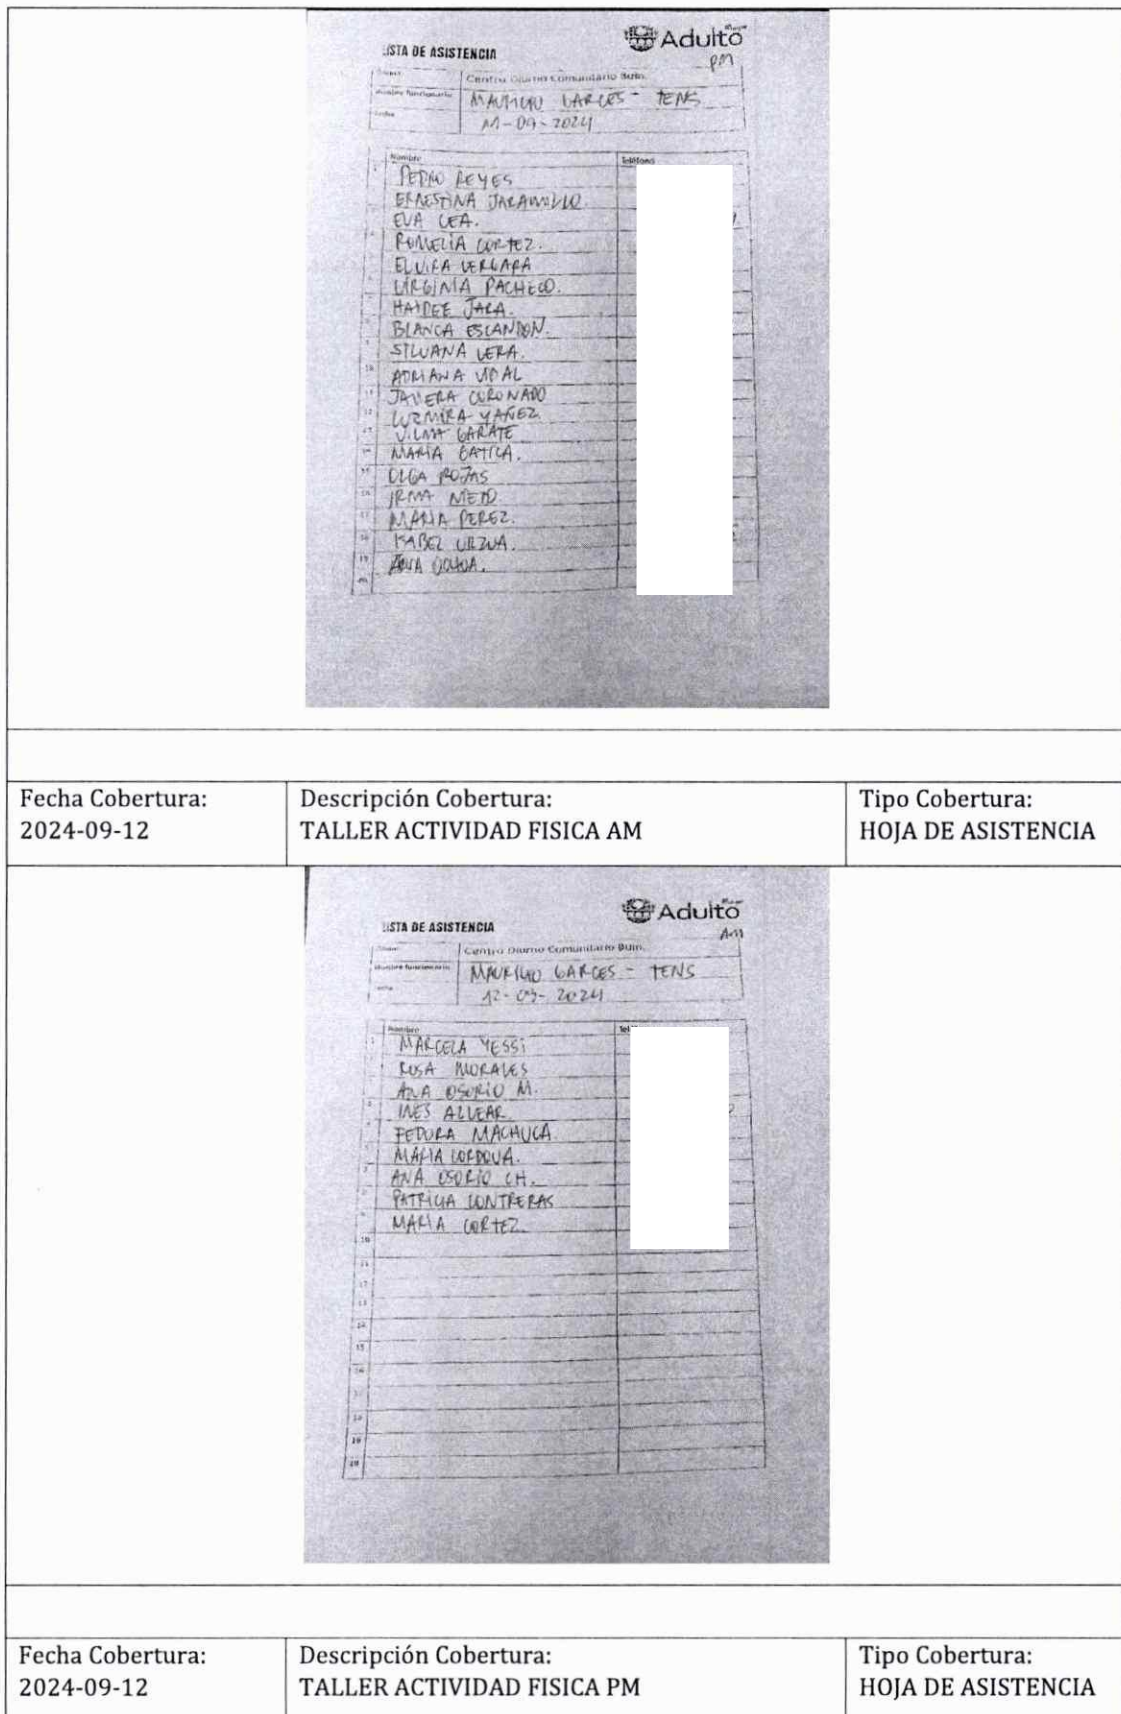 LISTA DE ASISTENCIA
Adulto
PM
Centro Diurno Comunitario Buin.
Nombre funcionario
MAURICIO GARCES - TENS
11-09-2024
Nombre Teléfono
PEDRO REYES
ERNESTINA JARAMILLO.
EVA LEA.
ROMELIA CORTEZ.
ELVIRA VERGARA
VIRGINIA PACHECO.
HAIDEE JARA.
BLANCA ESCANDON.
SILVANA VERA.
ADRIANA VIDAL
JAVIERA CORONADO
LUZMIRA YAÑEZ.
VILMA GARATE
MARIA GATICA.
OLGA ROJAS
IRMA NIETO
MARIA PEREZ.
ISABEL URZUA.
OCHOA.
Fecha Cobertura: Descripción Cobertura: Tipo Cobertura:
2024-09-12 TALLER ACTIVIDAD FISICA AM HOJA DE ASISTENCIA
LISTA DE ASISTENCIA
Adulto
AM
Centro Diurno Comunitario Buin.
Nombre funcionario
MAURICIO GARCES - TENS
12-09-2024
Nombre
MARCELA YESSI
ROSA MORALES
ANA OSORIO M.
INES ALLEAR.
FEDORA MACHUCA.
MARIA CORDOVA.
ANA OSORIO CH.
PATRICIA CONTRERAS
MARIA CORTEZ
10
11
12
13
14
15
16
17
18
19
20
Fecha Cobertura: Descripción Cobertura: Tipo Cobertura:
2024-09-12 TALLER ACTIVIDAD FISICA PM HOJA DE ASISTENCIA